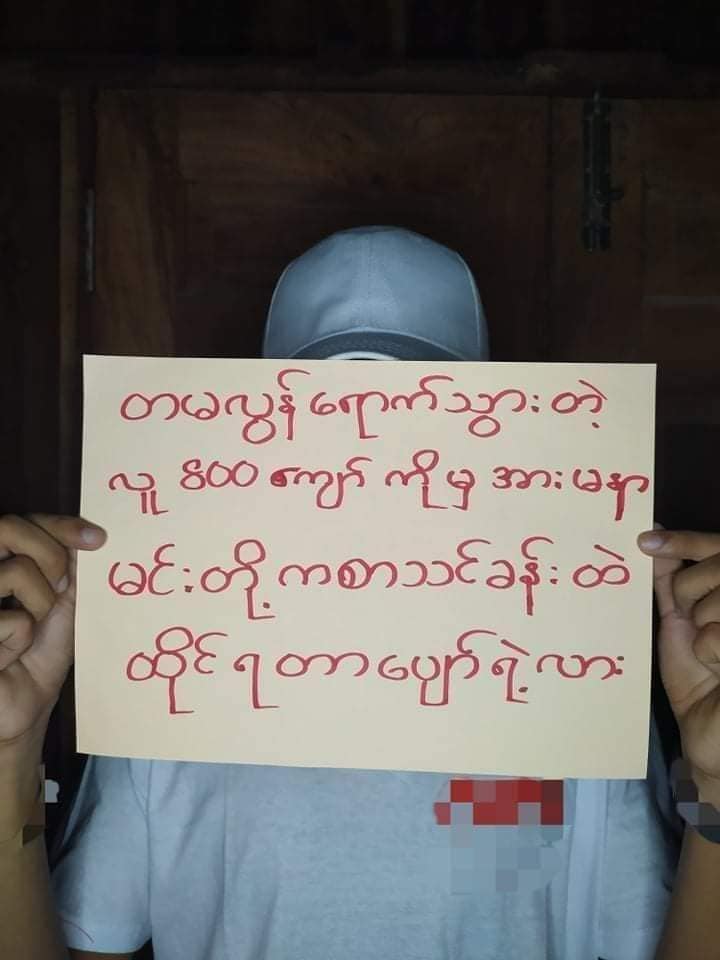 တမလွန် ရောက်သွားတဲ့
လူ 800 ကျော် ကိုမှ အားမနာ
မင်းတို့ ကစာသင်ခန်းထဲ
ထိုင်ရတာပျော်ရဲ့လား